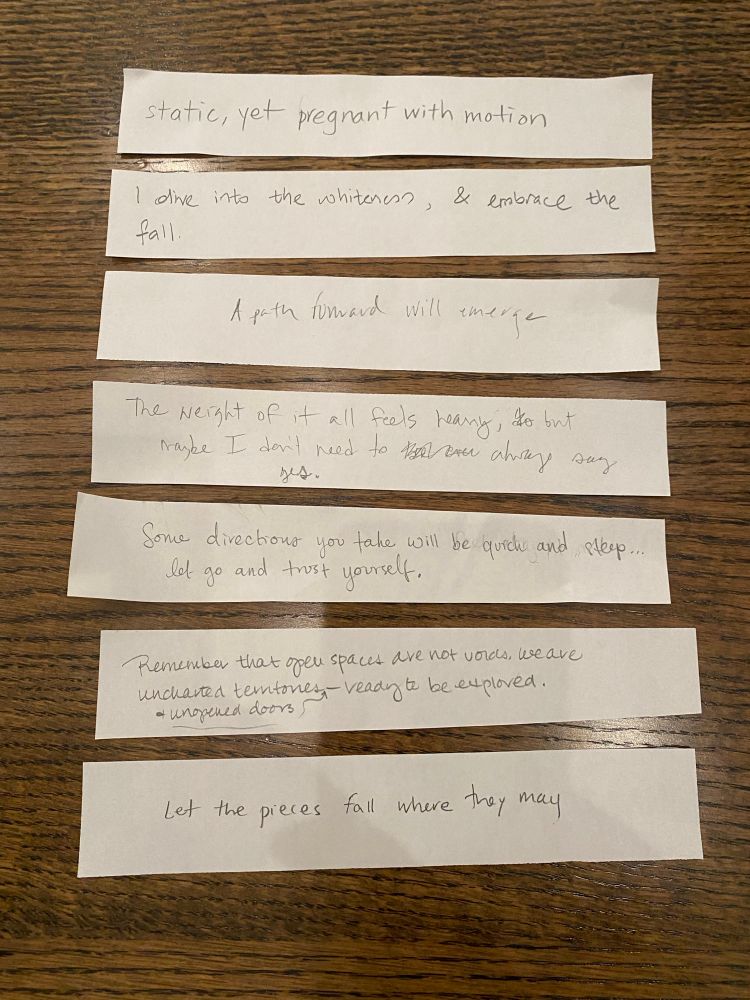 static, yet pregnant with motion
I dive into the whiteness, & embrace the
fall.
A path forward will emerge
The weight of it all feels heavy, but
maybe I don't need to always say
yes.
Some directions you take will be quick and steep...
let go and trust yourself.
Remember that open spaces are not voids. we are
uncharted territories – ready to be explored.
+ unopened doors
Let the pieces fall where they may